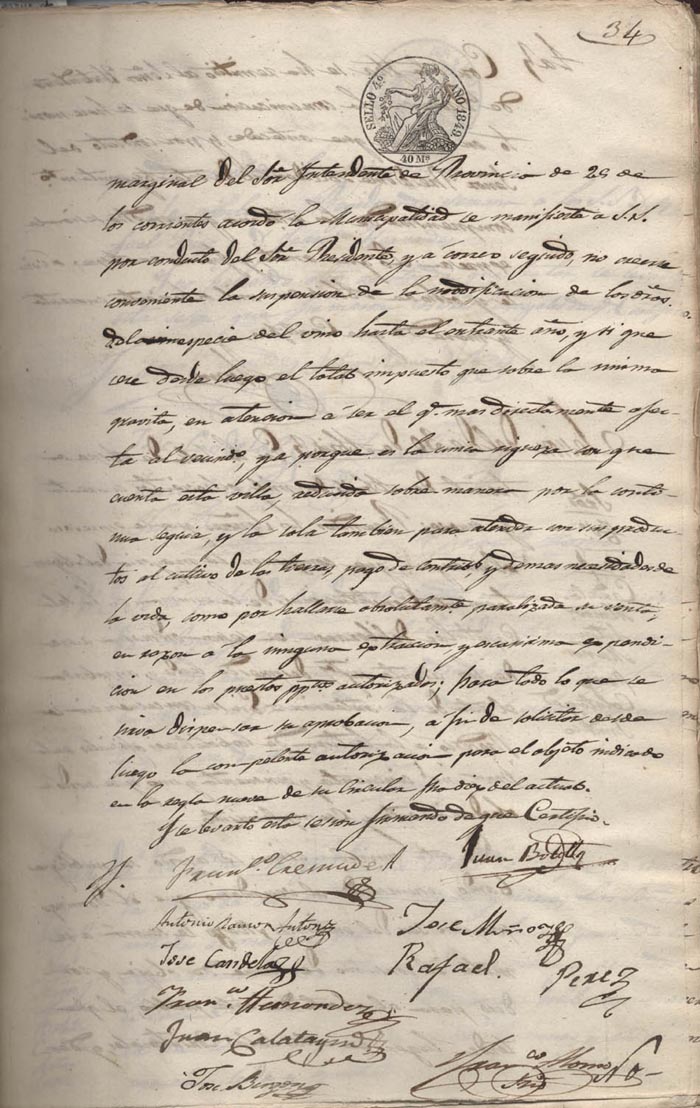 34
SELLO 4º AÑO 1849.
40 Ms
marginal del Sor. Intendente de Provincia de 29 de
los corrientes acordó la Municipalidad se manifieste a S.S.
por conducto del Sor. Presidente, y a correo seguido, no creerse
conveniente la suspension de la modificacion de los dros.
especie del vino hasta el entrante año, y si que
cese desde luego el total impuesto que sobre la misma
gravita, en atencion a ser el q. mas directamente afec-
ta al vecindo., ya porque es la unica riqueza con que
cuenta esta villa, reducida sobre manera por la conti-
nua sequia, y la sola tambien para atender con sus produc-
tos al cultivo de las tierras, pago de contribs. y demas necesidades de
la vida, como por hallarse absolutamte. paralizada su venta,
en razon a la ninguna extraccion y escasisima expendi-
cion en los puestos autorizados; para todo lo que se
sirva dispensar su aprobacion, a fin de solicitar desde
luego la competente autorizacion para el objeto indicado
en la regla nueve de su Circular fha diez del actual.
Y se levantó esta sesion firmando de que Certifico.
Franco. Cremades Juan Botella
Antonio Ramon Antonz Jose Muñoz
Jose Candela Rafael Perez
Franco. Hernandez
Juan Calatayud
Jose Franco.